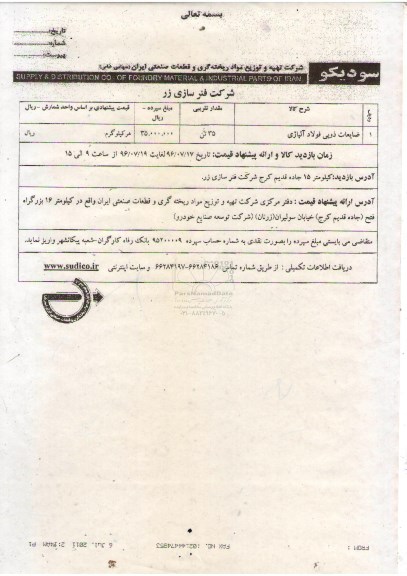 بسمه تعالی
تاریخ:
شماره:
پیوست:
سودیکو
شرکت تهیه و توزیع مواد ریخته‌گری و قطعات صنعتی ایران (سهامی خاص)
SUPPLY & DISTRIBUTION CO. OF FOUNDRY MATERIAL & INDUSTRIAL PARTS OF IRAN.
شرکت فنر سازی زر
ردیف شرح کالا مقدار تقریبی مبلغ سپرده - ریال قیمت پیشنهادی بر اساس واحد شمارش - ریال
۱ ضایعات ذوبی فولاد آلیاژی ۳۵ تن ۳۵,۰۰۰,۰۰۰ هر کیلوگرم ریال
زمان بازدید کالا و ارائه پیشنهاد قیمت: تاریخ ۹۶/۰۷/۱۷ لغایت ۹۶/۰۷/۱۹ از ساعت ۹ الی ۱۵
آدرس بازدید: کیلومتر ۱۵ جاده قدیم کرج شرکت فنر سازی زر.
آدرس ارائه پیشنهاد قیمت : دفتر مرکزی شرکت تهیه و توزیع مواد ریخته گری و قطعات صنعتی ایران واقع در کیلومتر ۱۴ بزرگراه
فتح (جاده قدیم کرج) خیابان سولیران(زرنان) (شرکت توسعه صنایع خودرو)
متقاضی می بایستی مبلغ سپرده را بصورت نقدی به شماره حساب سپرده ۹۵۲۰۰۰۰۹ بانک رفاه کارگران-شعبه پیکانشهر واریز نماید.
دریافت اطلاعات تکمیلی : از طریق شماره تماس ۶۶۲۸۴۱۸۶-۶۶۲۸۴۱۹۷ و سایت اینترنتی www.sudico.ir
FROM :
FAX NO. :
6 Jul. 2011
P1